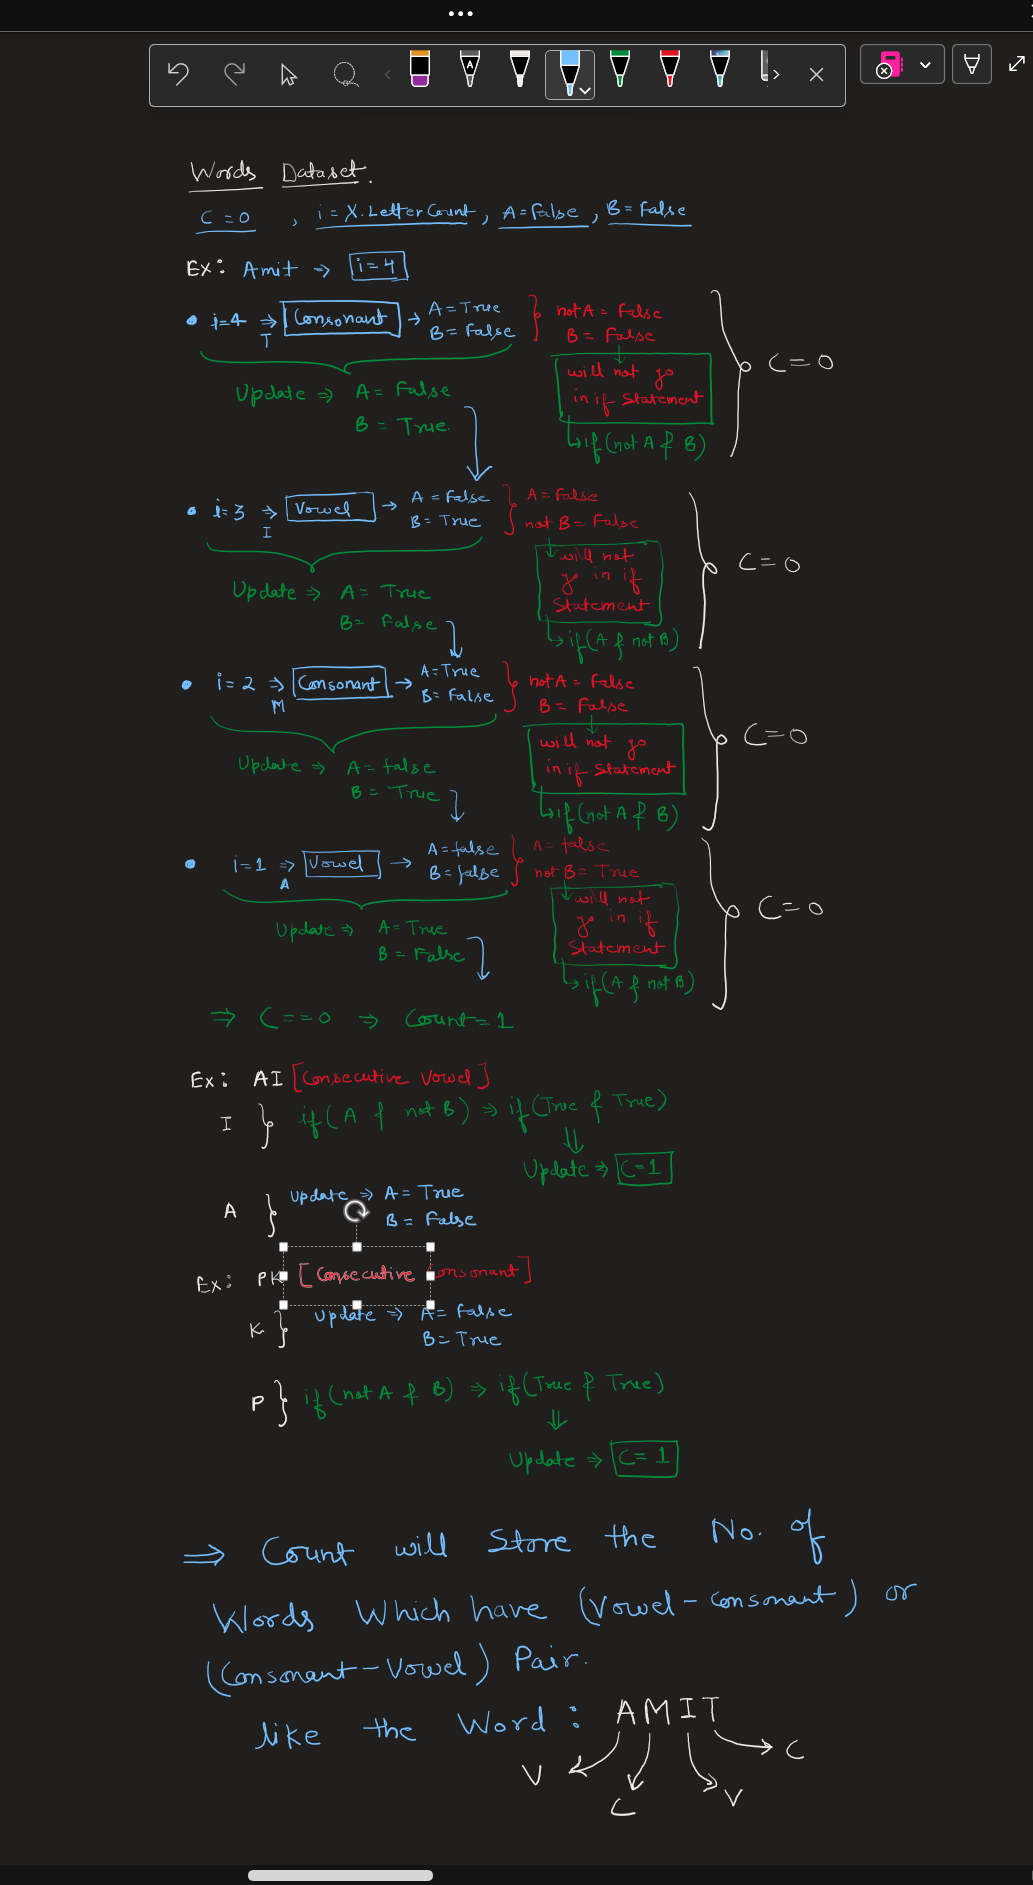 Words Dataset.
C = 0 , i = X.LetterCount, A = False, B = False
Ex: Amit ⇒ i=4
• i=4 ⇒ Consonant → A = True } not A = False
T B = False B = False
C = 0
will not go
in if Statement
Update ⇒ A = False
B = True.
if (not A & B)
• i=3 ⇒ Vowel → A = False } A = False
I B = True not B = False
C = 0
will not
go in if
Statement
Update ⇒ A = True
B = False
if (A & not B)
• i = 2 ⇒ Consonant → A = True } not A = False
M B = False B = False
C = 0
will not go
in if Statement
Update ⇒ A = false
B = True
if (not A & B)
• i=1 ⇒ Vowel → A = false } A = false
A B = false not B = True
C = 0
will not
go in if
Statement
Update ⇒ A = True
B = False
if (A & not B)
⇒ C == 0 ⇒ Count = 1
Ex: AI [Consecutive Vowel]
I } if (A & not B) ⇒ if (True & True)
⇓
Update ⇒ C=1
A } Update ⇒ A = True
B = False
Ex: PK [Consecutive Consonant]
K } Update ⇒ A = False
B = True
P } if (not A & B) ⇒ if (True & True)
⇓
Update ⇒ C = 1
⇒ Count will Store the No. of
Words Which have (Vowel-consonant) or
(Consonant-Vowel) Pair.
like the Word : AMIT
V C V C